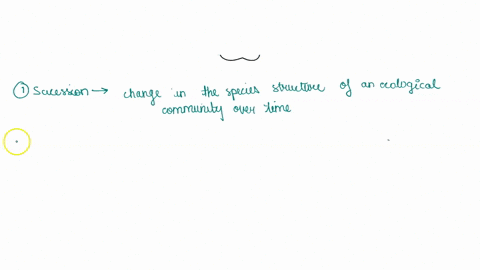 ① Sucession → change in the species structure of an ecological
community over time